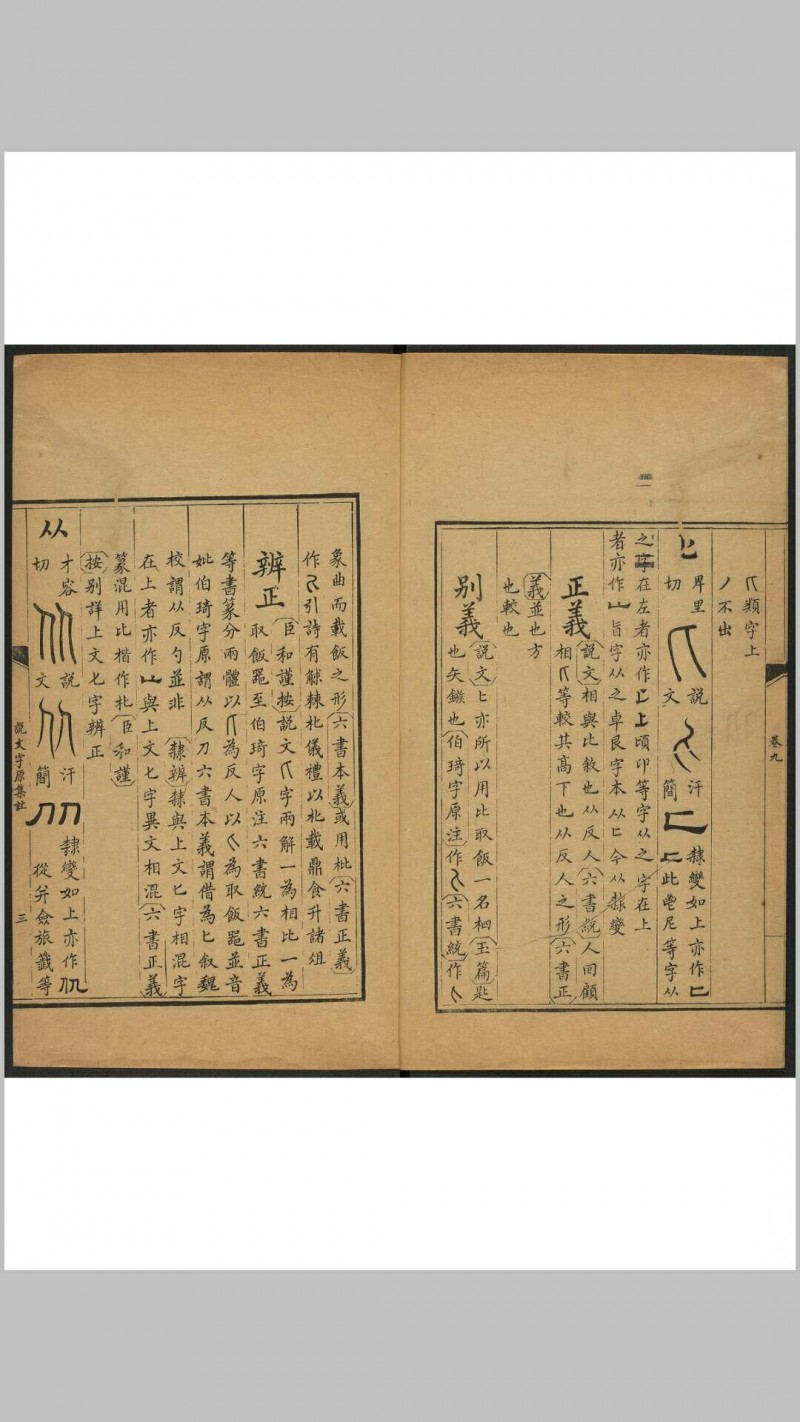 卷九
𠤎類字上
丿不出
匕 卑里切 說文 汗簡 隸變如上亦作匕 此皀尼等字从
之字在左者亦作 上頃卬等字从之字在上
者亦作 旨字从之卓艮字本从匕今从隸變
正義 說文相與比敘也从反人六書統人回顧
相 等較其高下也从反人之形六書正
義並也方
也較也
別義 說文匕亦所以用比取飯一名柶玉篇匙
也矢鏃也伯琦字原注作 六書統作
象曲而載飯之形六書本義或用枇六書正義
作 引詩有觩棘朼儀禮以朼載鼎食升諸俎
辨正 臣和謹按說文 字兩解一為相比一為
取飯器至伯琦字原注六書統六書正義
等書篆分兩體以 為反人以 為取飯器並音
妣伯琦字原謂从反刀六書本義謂借為匕敘魏
校謂从反勺並非 隸辨隸與上文匕字相混字
在上者亦作 與上文七字異文相混六書正義
篆混用比楷作朼臣和謹
按別詳上文七字辨正
从 才容切 說文 汗簡 隸變如上亦作
從并僉旅籤等
說文字原集註 三